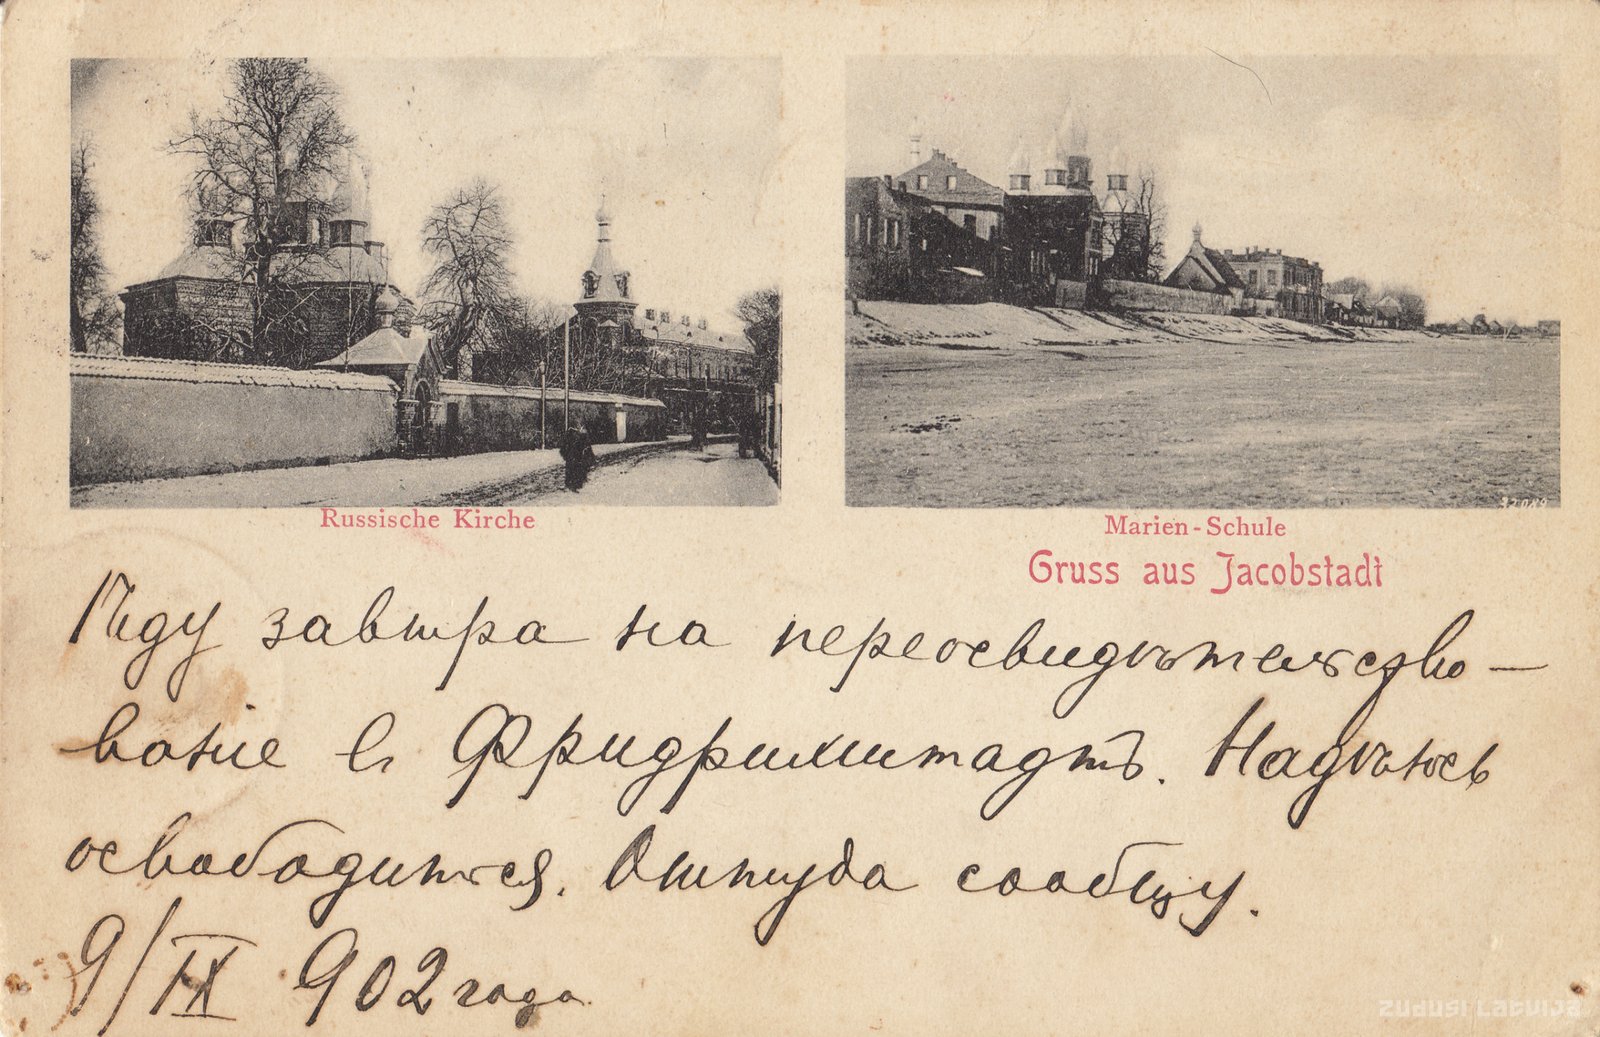 Russische Kirche
Marien-Schule
Gruss aus Jacobstadt
Ѣду завтра на переосвидѣтельство-
вание в Фридрихштадтъ. Надѣюсь
освободится. Оттуда сообщу.
9/IX 902 года.
32089
ZUDUSI LATVIJA